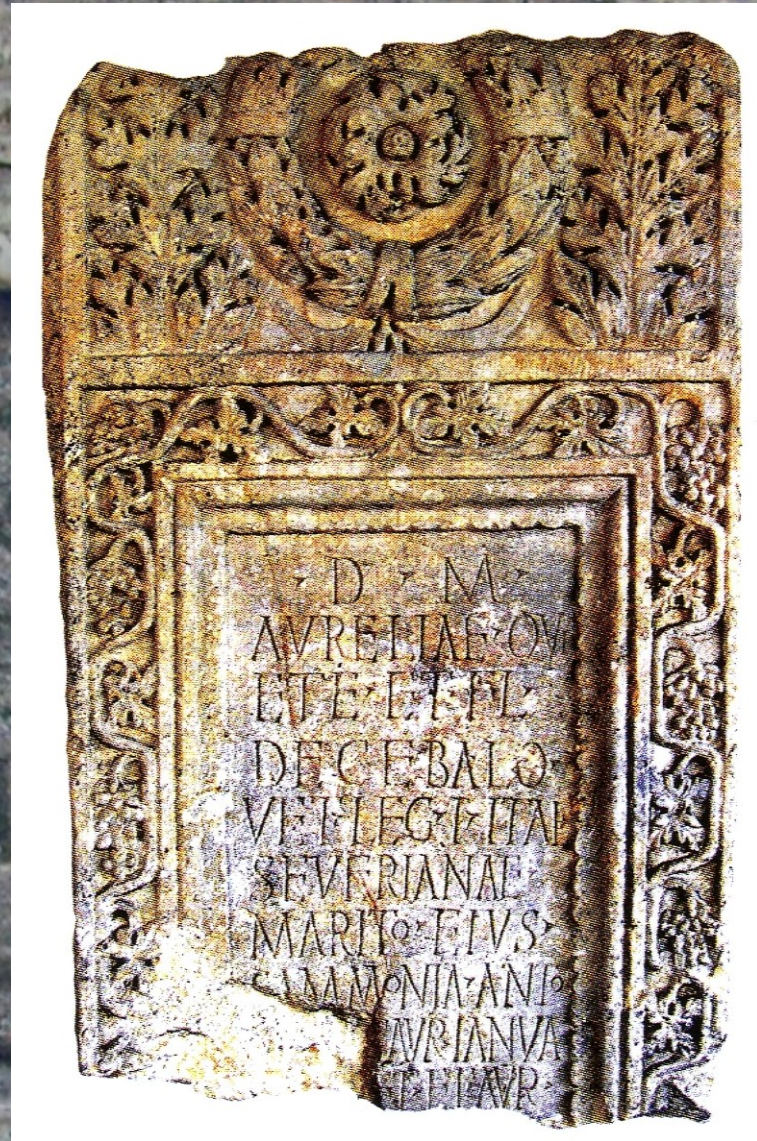 · D · M ·
AVRELIAE · QVI
ETE · ET · FL ·
DECEBALO ·
VET · LEG · I · ITAL
SEVERIANAE
MARITO · EIVS ·
SAMMONIA · ANTO
AVR · IANVA
ET · AVR ·